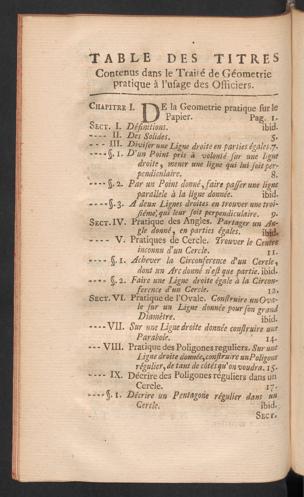 TABLE DES TITRES
Contenus dans le Traité de Géometrie
pratique à l'usage des Officiers.
CHAPITRE I. DE la Geometrie pratique sur le
Papier. Pag. 1.
SECT. I. Définitions. ibid.
---- II. Des Solides. 5.
---- III. Diviser une Ligne droite en parties égales. 7.
----§. 1. D'un Point pris à volonté sur une ligne
droite, mener une ligne qui lui soit per-
pendiculaire. 8.
----§. 2. Par un Point donné, faire passer une ligne
parallele à la ligne donnée. ibid.
----§. 3. A deux Lignes droites en trouver une troi-
siéme, qui leur soit perpendiculaire. 9.
SECT. IV. Pratique des Angles. Partager un An-
gle donné, en parties égales. ibid.
---- V. Pratiques de Cercles. Trouver le Centre
inconnu d'un Cercle. 11.
----§. 1. Achever la Circonference d'un Cercle,
dont un Arc donné n'est que partie. ibid.
----§. 2. Faire une Ligne droite égale à la Circon-
ference d'un Cercle. 12.
SECT. VI. Pratique de l'Ovale. Construire un Ova-
le sur un Ligne donnée pour son grand
Diamétre. ibid.
----VII. Sur une Ligne droite donnée construire une
Parabole. 14.
---- VIII. Pratique des Poligones reguliers. Sur une
Ligne droite donnée, construire un Poligone
régulier, de tant de côtés qu'on voudra. 15.
---- IX. Décrire des Poligones réguliers dans un
Cercle. 17.
----§. 1. Décrire un Pentagone régulier dans un
Cercle. ibid.
SECT.